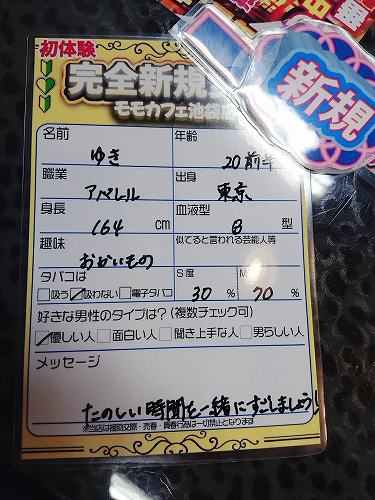 初体験
完全新規
モモカフェ池袋
新規
名前
ゆき
年齢
20前半
職業
アパレル
出身
東京
身長
164 cm
血液型
B 型
趣味
おかいもの
似てると言われる芸能人等
タバコは
吸う 吸わない 電子タバコ
S度
30 %
M
70 %
好きな男性のタイプは?(複数チェック可)
優しい人 面白い人 聞き上手な人 男らしい人
メッセージ
たのしい時間を一緒にすごしましょう!
※当店は援助交際・売春・買春行為は一切禁止となります